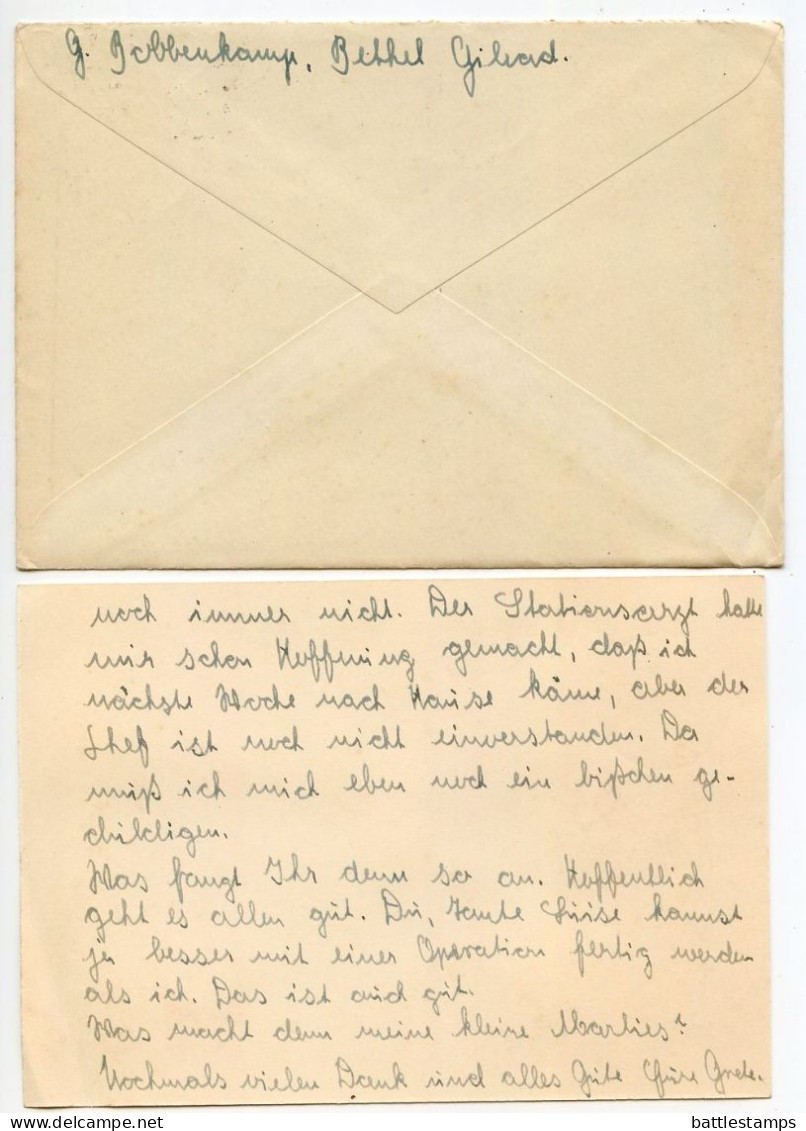 G. Bobbenkamp, Bethel Gilead.
noch immer nicht. Der Stationsarzt hatte
mir schon Hoffnung gemacht, daß ich
nächste Woche nach Hause käme, aber der
Chef ist noch nicht einverstanden. Da
muß ich mich eben noch ein bißchen ge-
duldigen.
Was fangt Ihr denn so an. Hoffentlich
geht es allen gut. Du, Tante Luise kannst
ja besser mit einer Operation fertig werden
als ich. Das ist auch gut.
Was macht denn meine kleine Marlies?
Nochmals vielen Dank und alles Gute Eure Grete.
battlestamps